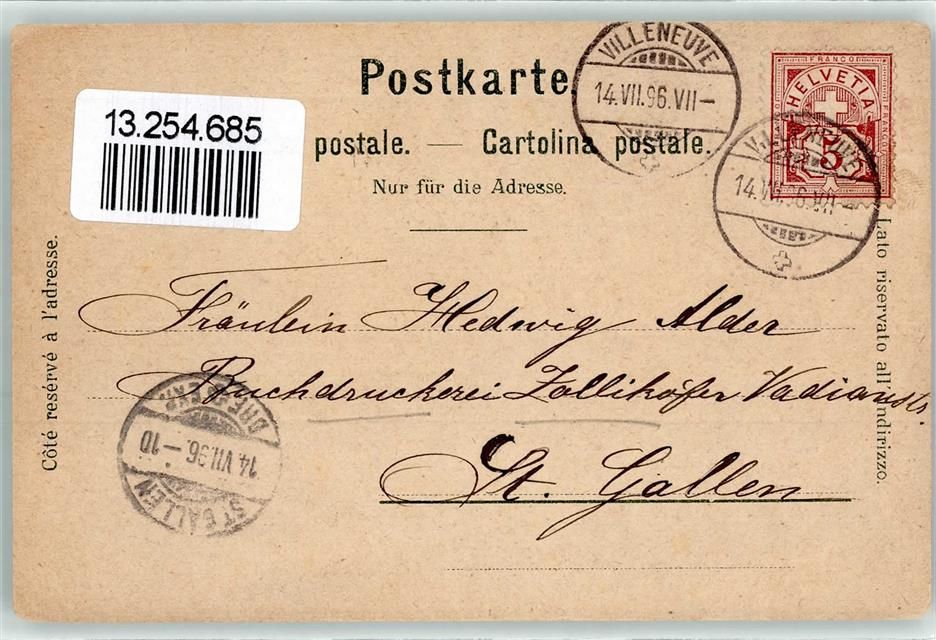 Postkarte
13.254.685
postale. — Cartolina postale.
Nur für die Adresse.
VILLENEUVE
14.VII.96.VII-
FRANCO
HELVETIA
5
VILLENEUVE
14.VII.96.VII-
Côté resérvé à l'adresse.
Lato riservato all'indirizzo.
Fräulein Hedwig Alder
Buchdruckerei Zollikofer Vadianstr.
St. Gallen
ST GALLEN
14 VII.96.-10